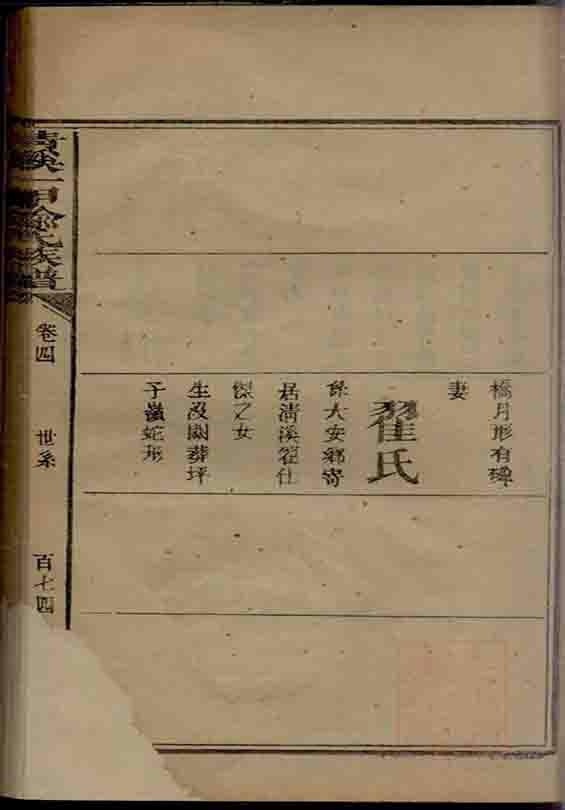 橋月形有碑
妻
翟氏
係大安鄉寄
居清溪翟仕
傑之女
生歿闕葬坪
子嶺蛇形
氏族譜
卷四
世系
百七四